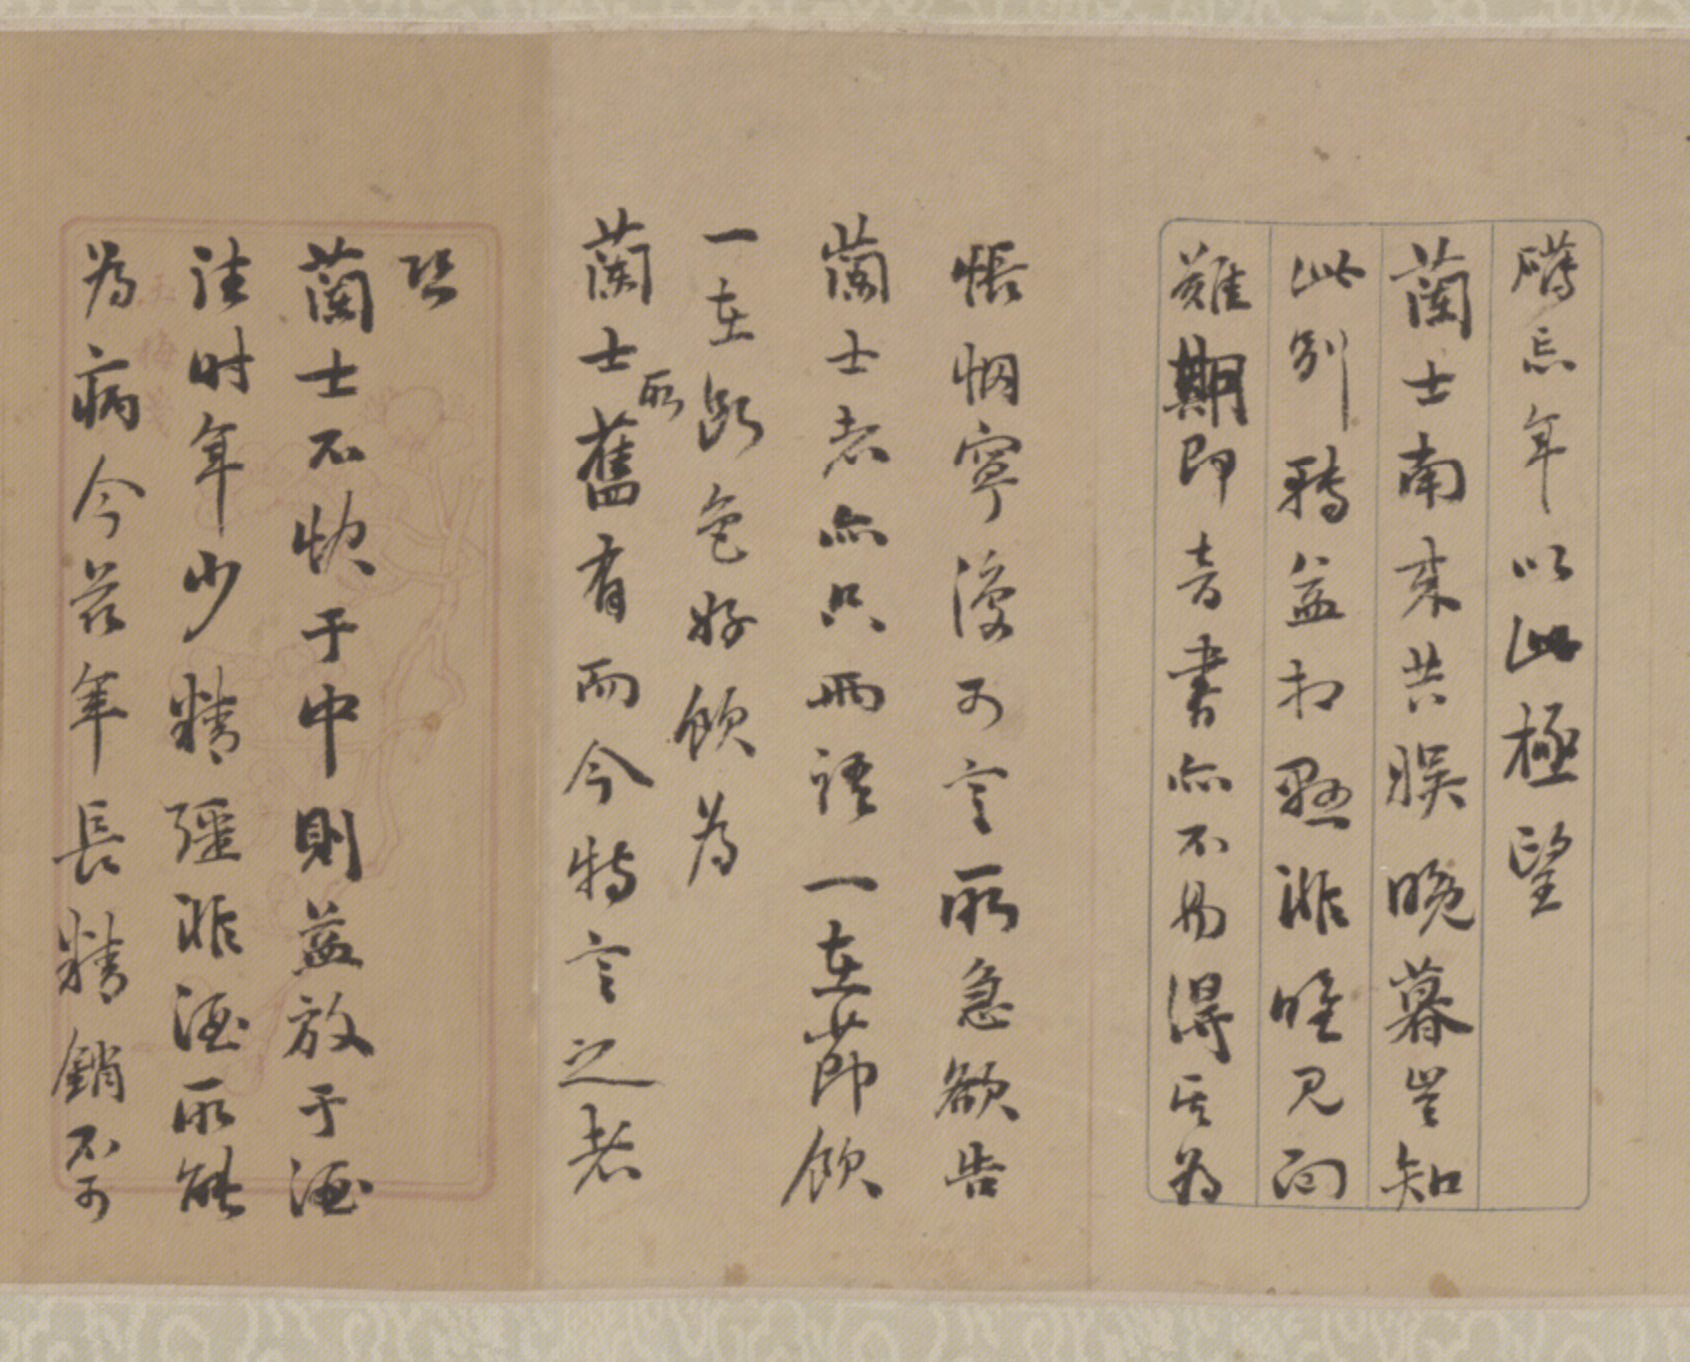 忘年以此極望
蘭士南來共娛晚暮豈知
此別轉益相懸非唯見面
難期即音書亦不易得其為
悵惘寧復可言所急欲告
蘭士者亦只兩語一在節飲
一在斷色好飲為
蘭士所舊有而今特言之者
恐
蘭士不快于中則益放于酒
往時年少精強非酒所能
為病今茲年長精銷不可
玉梅箋